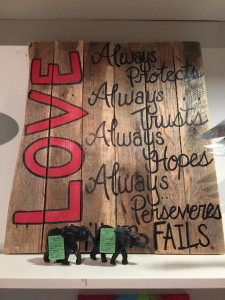 LOVE
Always
Protects
Always
Trusts
Always
Hopes
Always
Perseveres
FAILS.